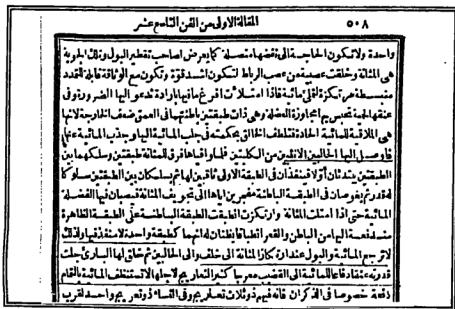 ٥٠٨ المقالة الاولى من الفن التاسع عشر
واحدة ولا تكون الحاجة الى نفضها متصلة كما يعرض لصاحب تقطير البول وتلك الجوبة
هى المثانة وخلقت عصبية من عصب الرباط لتكون اشد قوة وتكون مع الوثاقة قابلة للتمدد
منبسطة مرتكزة لتمتلئ مائية فاذا امتلأت افرغ ما فيها بارادة تدعو اليها الضرورة وفى
عنقها لحمية تحبس بها مجاوزة العضلة وهى ذات طبقتين باطنتهما فى العمق ضعف الخارجة لانها
هى الملاقية للمائية الحادة فتلطف الخالق بحكمته فى جلب المائية اليها وجذب المائية عنها
فاوصل اليها الحالبين الآتيين من الكليتين فلما وافياها فرق للمثانة طبقتين وسلكهما بين
الطبقتين يبتدئان اولا فينفذان فى الطبقة الاولى ثاقبين لها ثم يسلكان بين الطبقتين سلوكا
له قدر ثم يغوصان فى الطبقة الباطنة مفجرين اياها الى تجويف المثانة فيصبان فيها الفضلة
المائية حتى اذا امتلت المثانة وارتكزت انطبقت الطبقة الباطنة على الطبقة الظاهرة
مندفعة اليها من الباطن والقعر انطباقا يظنان له انهما كطبقة واحدة لا منفذ فيها ولذلك
لا ترجع المائية والبول عند ارتكاز المثانة الى خلف والى الحالبين ثم خلق لها البارئ جلت
قدرته عنقا دفاعا للمائية الى القضيب معرجا كثير التعاريج لاجلها لا تستنظف المائية بالتمام
دفعة خصوصا فى الذكران فانه فيهم ذو ثلاث تعاريج وفى النساء ذو تعريج واحد لقرب